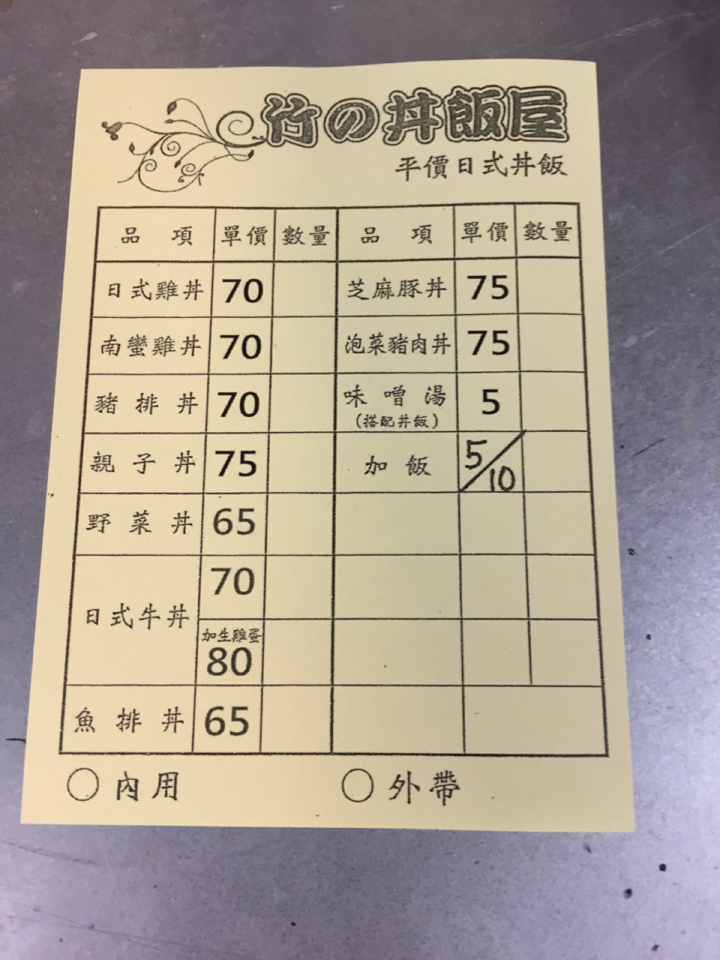 竹の丼飯屋
平價日式丼飯
品項 單價 數量 品項 單價 數量
日式雞丼 70 芝麻豚丼 75
南蠻雞丼 70 泡菜豬肉丼 75
豬排丼 70 味噌湯 5
(搭配丼飯)
親子丼 75 加飯 5/10
野菜丼 65
日式牛丼 70
加生雞蛋
80
魚排丼 65
○內用 ○外帶